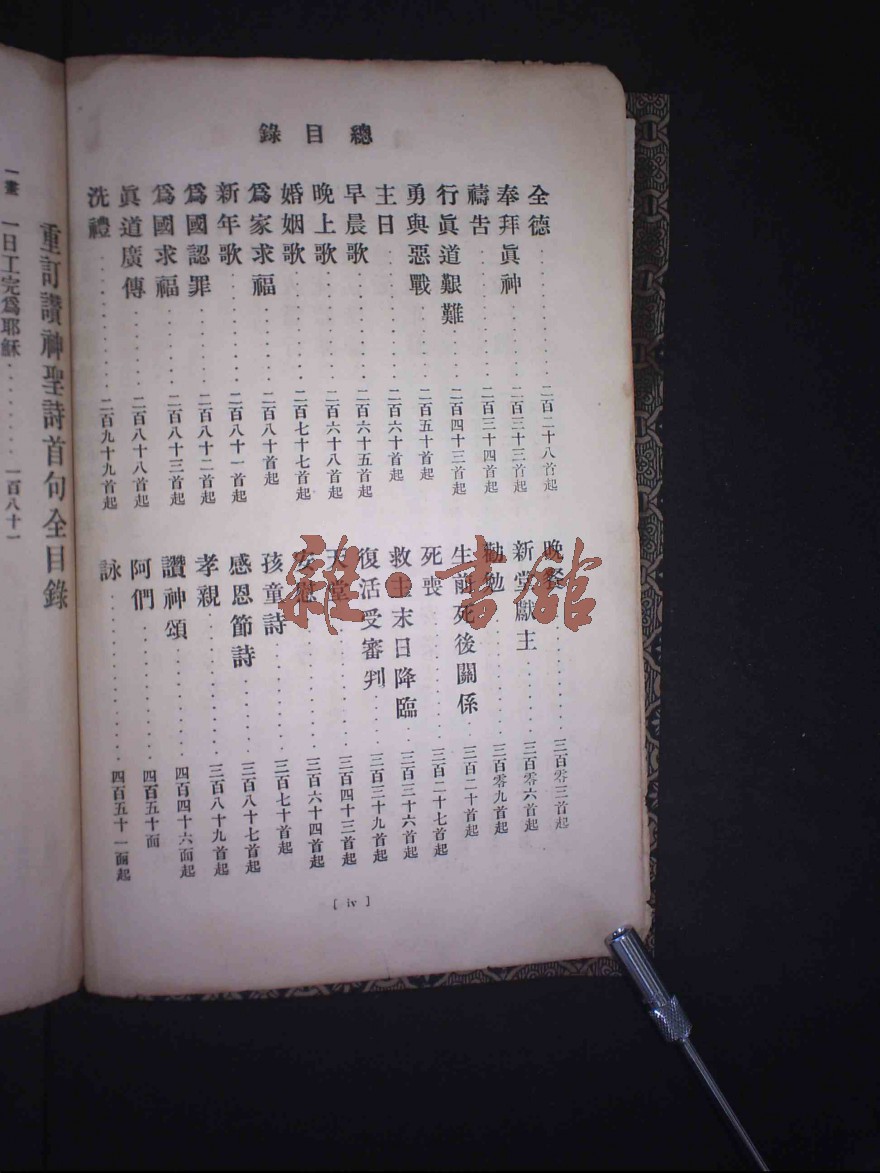 總目錄
全德 二百二十八首起
奉拜眞神 二百三十三首起
禱告 二百三十四首起
行眞道艱難 二百四十三首起
勇與惡戰 二百五十首起
主日 二百六十首起
早晨歌 二百六十五首起
晚上歌 二百六十八首起
婚姻歌 二百七十七首起
爲家求福 二百八十首起
新年歌 二百八十一首起
爲國認罪 二百八十二首起
爲國求福 二百八十三首起
眞道廣傳 二百八十八首起
洗禮 二百九十九首起
晚餐 三百零三首起
新堂獻主 三百零六首起
勸勉 三百零九首起
生前死後關係 三百二十首起
死喪 三百二十七首起
救主末日降臨 三百三十六首起
復活受審判 三百三十九首起
天堂 三百四十三首起
安慰 三百六十四首起
孩童詩 三百七十首起
感恩節詩 三百八十七首起
孝親 三百八十九首起
讚神頌 四百四十六面起
阿們 四百五十面
詠 四百五十一面起
[ iv ]
重訂讚神聖詩首句全目錄
一畫 一日工完爲耶穌 一百八十一
雜·書館